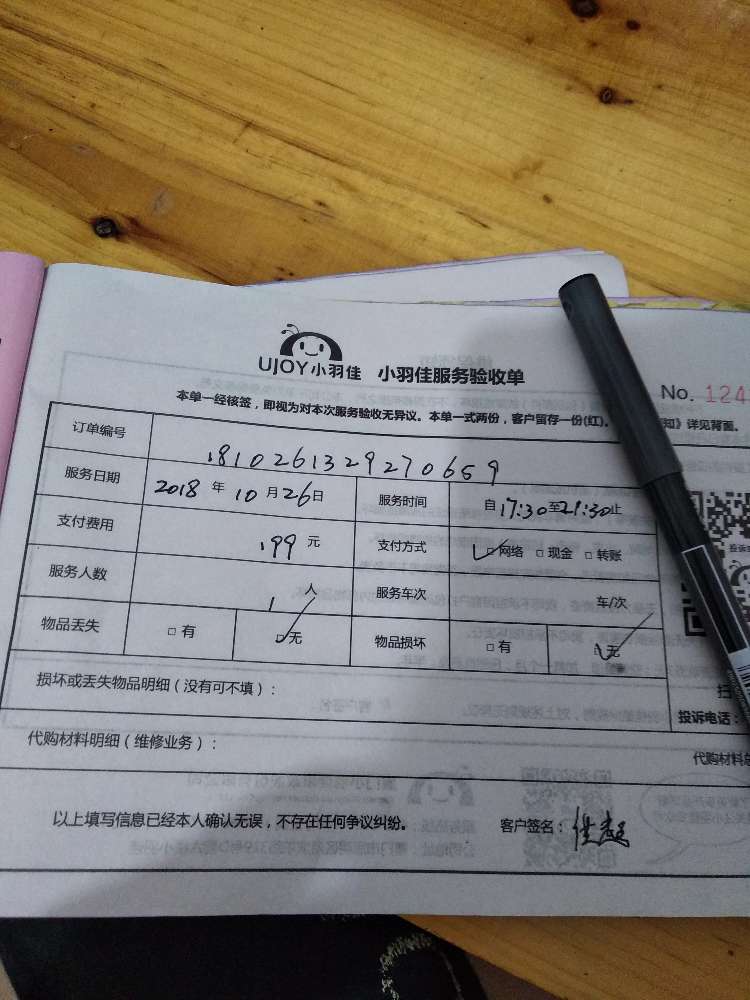 UJOY小羽佳 小羽佳服务验收单
No. 124
本单一经核签，即视为对本次服务验收无异议。本单一式两份，客户留存一份(红)。 知》详见背面。
订单编号 1810261329270659
服务日期 2018 年 10 月 26 日 服务时间 自 17:30 至 21:30 止
支付费用 199 元 支付方式 □ 网络 □ 现金 □ 转账
服务人数 1 人 服务车次 车/次
物品丢失 □ 有 □ 无 物品损坏 □ 有 □ 无
损坏或丢失物品明细（没有可不填）：
扫
投诉电话：
代购材料明细（维修业务）：
代购材料总
以上填写信息已经本人确认无误，不存在任何争议纠纷。 客户签名：